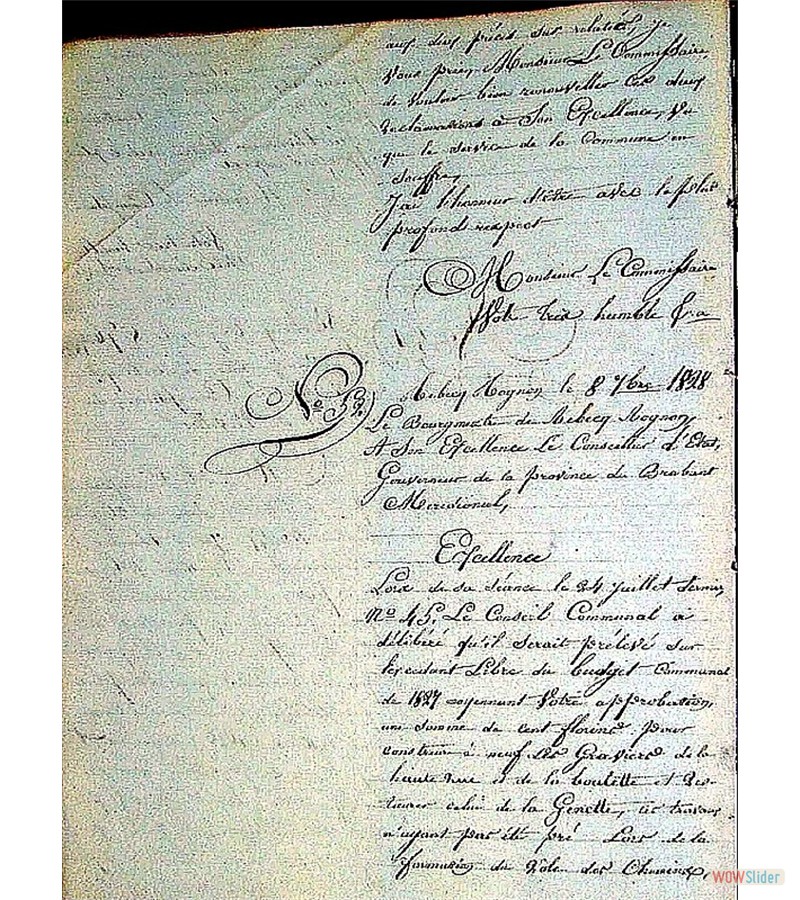 aux dus précis sus relatés, je
vous prie, Monsieur Le Commissaire,
de vouloir bien renouveller ces deux
réclamations à Son Excellence, Vu
que le service de la Commune en
souffre,
J'ai l'honneur d'être avec le plus
profond respect
Monsieur Le Commissaire
Votre très humble
N.º 52. Rebecq Rognon le 8 7bre 1828
Le Bourgmestre de Rebecq Rognon,
A Son Excellence Le Conseiller d'Etat,
Gouverneur de la province du Brabant
Meridional,
Excellence
Lors de sa séance le 24 juillet dernier,
Nº 45, Le Conseil Communal a
délibéré qu'il serait prélevé sur
l'excedant Libre du budget Communal
de 1827 moyennant Votre approbation,
une somme de cent florins pour
construire à neuf les Graviers de la
haute rue et de la boulette et res-
taurer celui de la Genette, ces travaux
n'ayant pas été pré Lors de la
formation du Role des Chemins,
WOWSlider